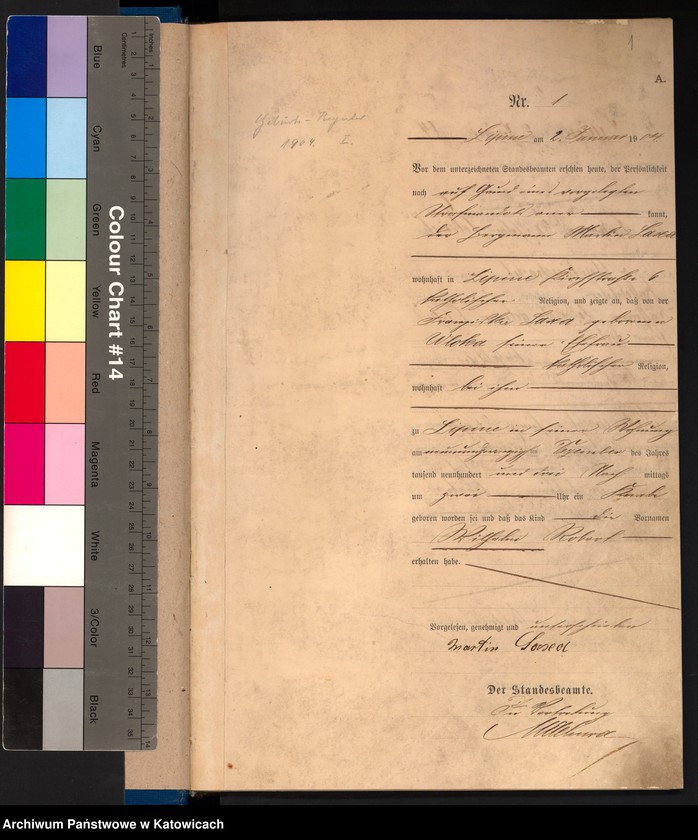 1
A.
Nr. 1
Lipine am 2. Januar 1904.
Vor dem unterzeichneten Standesbeamten erschien heute, der Persönlichkeit
nach auf Grund eines vorgelegten
kannt,
der Bergmann Martin Saxa
wohnhaft in Lipine Kirchstraße 6
katholischer Religion, und zeigte an, daß von der
Franziska Saxa geborenen
Wloka seiner Ehefrau
katholischer Religion,
wohnhaft bei ihm
zu Lipine in seiner Wohnung
am neunundzwanzigsten Dezember des Jahres
tausend neunhundert und drei Nach mittags
um zwei Uhr ein Knabe
geboren worden sei und daß das Kind die Vornamen
Wilhelm Robert
erhalten habe.
Vorgelesen, genehmigt und unterschrieben
Martin Saxa
Der Standesbeamte.
In Vertretung
Geburts-Register
1904. I.
Colour Chart #14
Blue
Cyan
Green
Yellow
Red
Magenta
White
3/Color
Black
Centimetres
Inches
Archiwum Państwowe w Katowicach